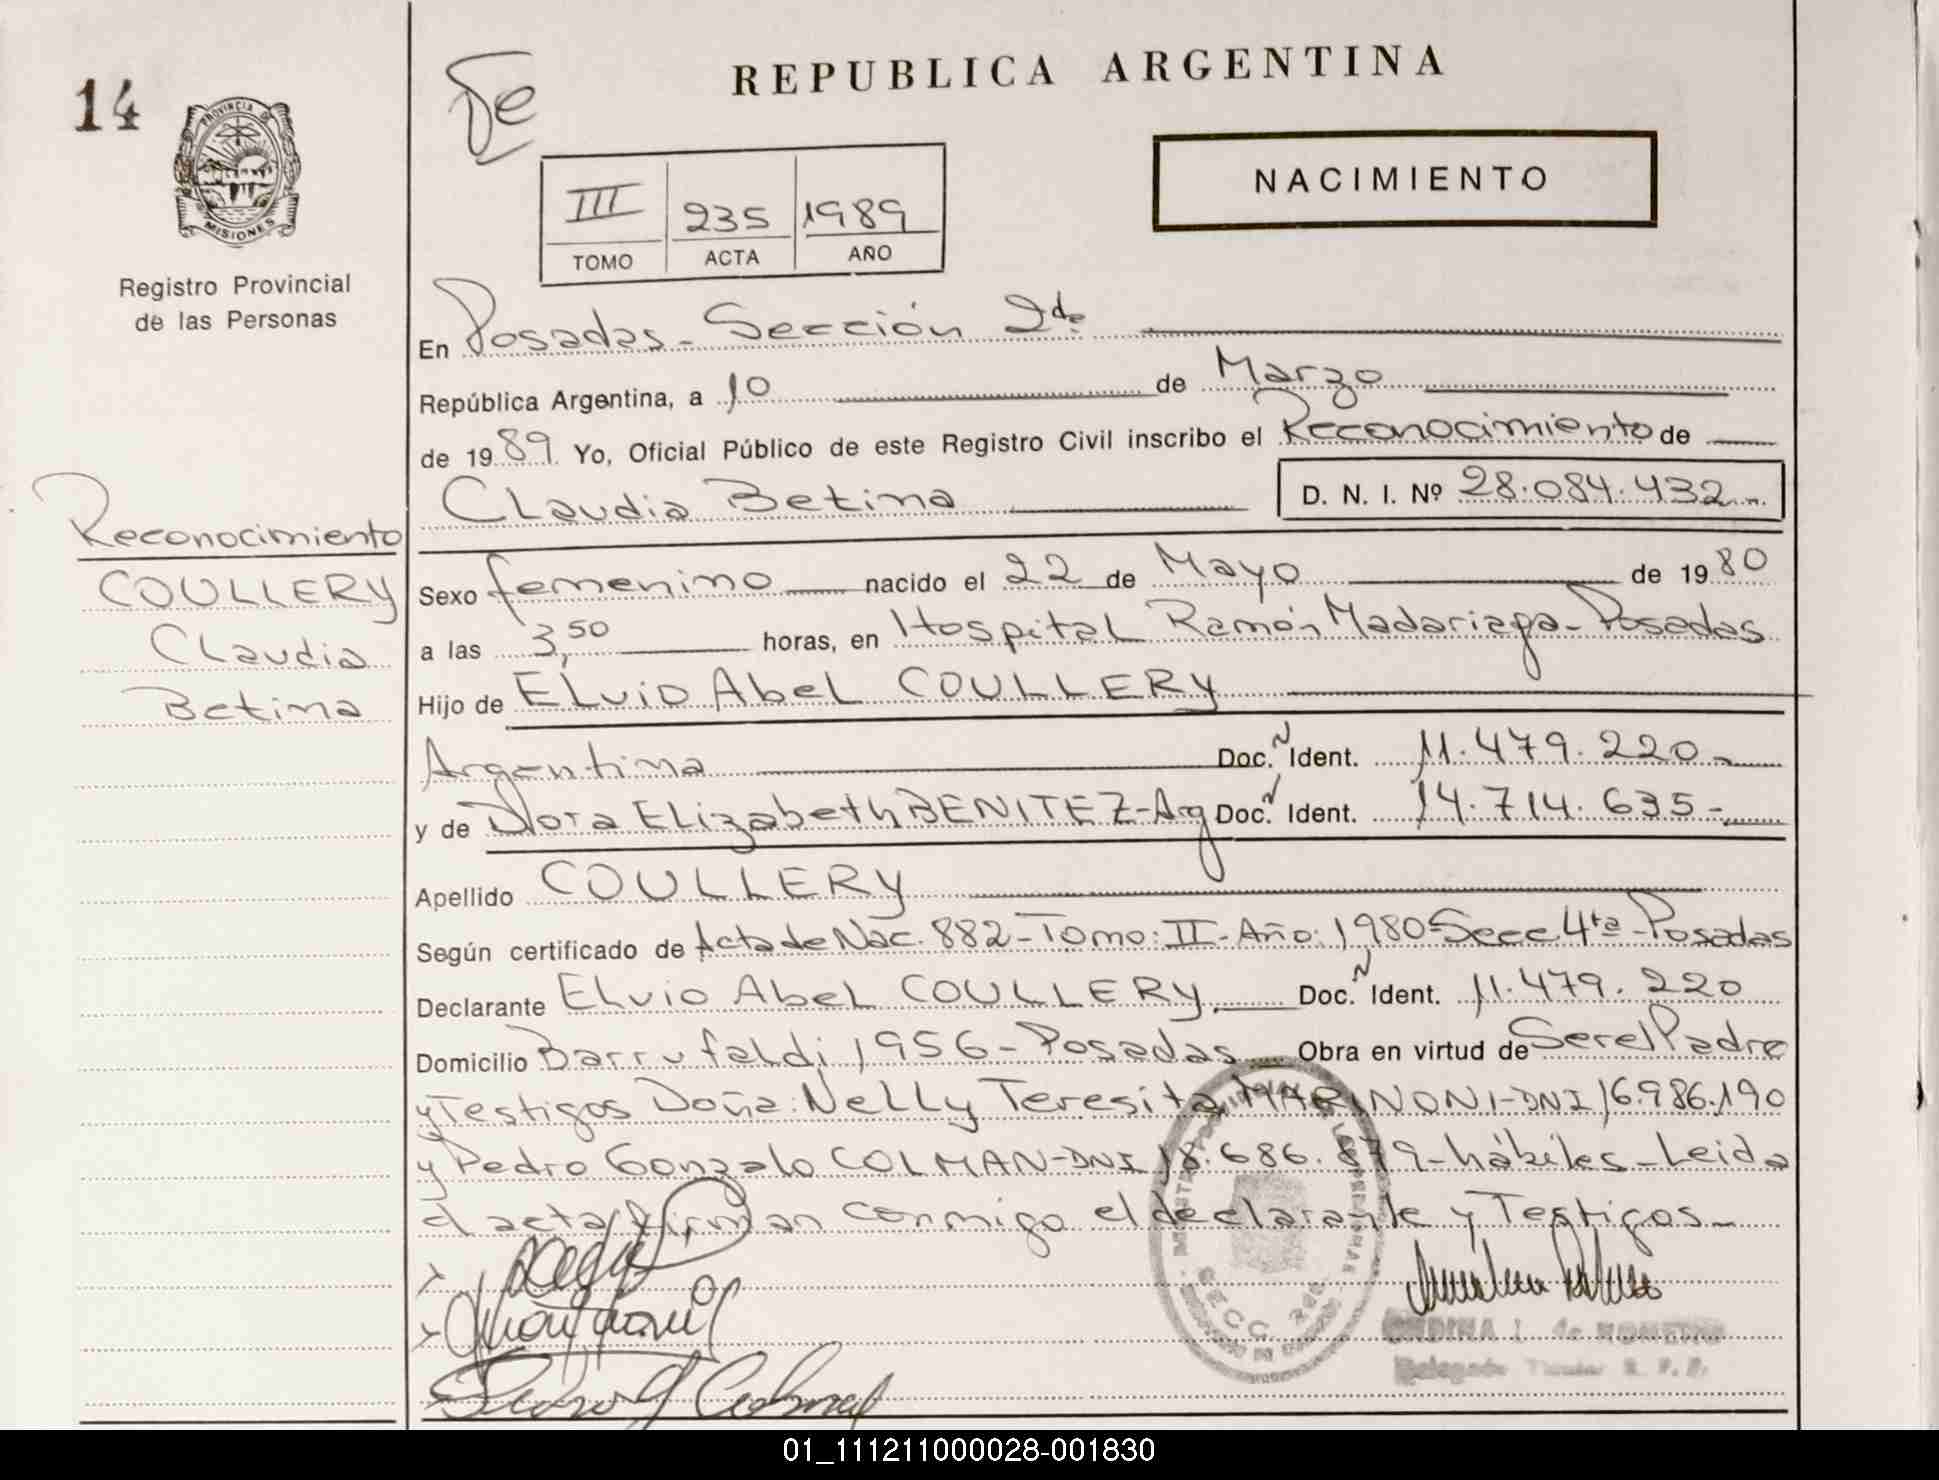 14
PROVINCIA DE
MISIONES
Registro Provincial
de las Personas
REPUBLICA ARGENTINA
NACIMIENTO
III 235 1989
TOMO ACTA AÑO
En Posadas - Sección 2da
República Argentina, a 10 de Marzo
de 1989 Yo, Oficial Público de este Registro Civil inscribo el Reconocimiento de
Claudia Betina D. N. I. Nº 28.084.432
Reconocimiento
COULLERY
Claudia
Betina
Sexo femenino nacido el 22 de Mayo de 1980
a las 3,50 horas, en Hospital Ramón Madariaga - Posadas
Hijo de ELvio AbeL COULLERY
Argentina Doc. N Ident. 11.479.220-
y de Dora ELizabeth BENITEZ - Arg Doc. N Ident. 14.714.635-
Apellido COULLERY
Según certificado de Acta de Nac. 882 - Tomo: II - Año: 1980 Secc. 4ta - Posadas
Declarante ELvio AbeL COULLERY Doc. N Ident. 11.479.220
Domicilio Barrufaldi 1956 - Posadas Obra en virtud de Ser el Padre
y Testigos Doña: NeLLy Teresita MARINONI - DNI 16.986.190
y Pedro Gonzalo COLMAN - DNI 18.686.879 - hábiles - Leida
el acta firman conmigo el declarante y Testigos -
SECC. 2da
ONDINA I. de ROMERO
Delegado Titular R. P. P.
01_111211000028-001830